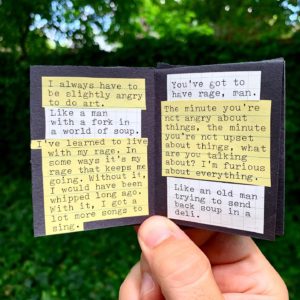 I always have to
be slightly angry
to do art.
Like a man
with a fork in
a world of soup.
I've learned to live
with my rage. In
some ways it's my
rage that keeps me
going. Without it,
I would have been
whipped long ago.
With it, I got a
lot more songs to
sing.
You've got to
have rage, man.
The minute you're
not angry about
things, the minute
you're not upset
about things, what
are you talking
about? I'm furious
about everything.
Like an old man
trying to send
back soup in a
deli.